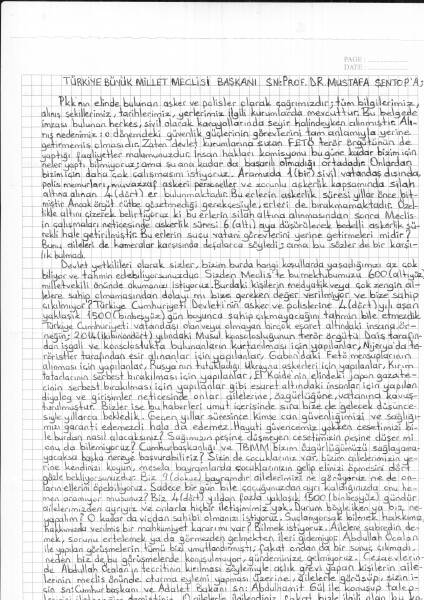 PAGE:
DATE:
TÜRKİYE BÜYÜK MİLLET MECLİSİ BAŞKANI SN: PROF. DR. MUSTAFA ŞENTOP'A;
Pkk'nın elinde bulunan asker ve polisler olarak çağrımızdır; tüm bilgilerimiz,
alınış şekillerimiz, tarihlerimiz, yerlerimiz ilgili kurumlarda mevcuttur. Bu belgede
imzası bulunan herkes, sivil olarak karayollarında seyir halindeyken alınmıştır. Alın-
mış nedenimiz; o dönemdeki güvenlik güçlerinin görevlerini tam anlamıyla yerine
getirmemiş olmasıdır. Zaten devlet kurumlarına sızan FETÖ terör örgütünün de
yaptığı faaliyetler malumunuzdur. İnsan hakları komisyonu bugüne kadar bizim için
neler yaptı bilmiyoruz; ama şuana kadar da başarılı olmadığı ortadadır. Onlardan
bizim için daha çok çalışmasını istiyoruz. Aramızda 1 (bir) sivil vatandaş dışında,
polis memurları, muvazzaf askeri personeller ve zorunlu askerlik kapsamında silah
altına alınan 4 (dört) er bulunmaktadır. Bu erlerin askerlik süresi yıllar önce bit-
miştir. Ancak örgüt rütbe gözetmediği gerekçesiyle, erleri de bırakmamaktadır. Özel-
likle altını çizerek belirtiyoruz ki bu erlerin silah altına alınmasından sonra Meclis-
in çalışmaları neticesinde askerlik süresi 6 (altı) aya düşürülerek bedelli askerlik sü-
rekli hale getirilmiştir. Bu erlerin suçu vatani görevlerini yerine getirmeleri midir?
Bunu aileleri de kameralar karşısında defalarca söyledi; ama bu sözler de bir karşı-
lık bulmadı.
Devlet yetkilileri olarak sizler, bizim burda hangi koşullarda yaşadığımızı az çok
biliyor ve tahmin edebiliyorsunuzdur. Sizden Meclis'te bu mektubumuzu 600 (altıyüz)
milletvekili önünde okumanızı istiyoruz. Burdaki kişilerin medyatik veya çok zengin ai-
lelere sahip olmamasından dolayı mı bize gereken değer verilmiyor ve bize sahip
çıkılmıyor? Türkiye Cumhuriyeti Devleti'nin asker ve polislerine 4 (dört) yılı aşan
yaklaşık 1500 (binbeşyüz) gün boyunca sahip çıkmayacağını tahmin bile etmezdik.
Türkiye Cumhuriyeti vatandaşı olan veya olmayan birçok esaret altındaki insana, ör-
neğin; 2014 (ikibinondört) yılındaki Musul konsolosluğunun terör örgütü Daiş tarafın-
dan işgali ve konsoloslukta bulunanların kurtarılması için yapılanlar, Nijerya'da te-
röristler tarafından esir alınanlar için yapılanlar, Gabon'daki Fetö mensuplarının
alınması için yapılanlar, Rusya'nın tutukladığı Ukrayna askerleri için yapılanlar, Kırım
tatarlarının serbest bırakılması için yapılanlar, El Kaide'nin elindeki Japon gazete-
cinin serbest bırakılması için yapılanlar gibi esaret altındaki insanlar için yapılan
diyalog ve girişimler neticesinde onlar ailelerine, özgürlüğüne, vatanına kavuş-
turulmuştur. Bizler ise bu haberleri umut içerisinde sıra bize de gelecek düşünce-
siyle yıllarca bekledik. Geçen yıllar süresince kimse can güvenliğimizi ve sağlığı-
mızı garanti edemezdi hala da edemez. Hayati güvencemiz yokken cesetimizi bi-
le burdan nasıl alacaksınız? Sağımızın peşine düşmeyen cesetimizin peşine düşer mi
onu da bilemiyoruz? Cumhurbaşkanlığı ve TBMM bizim özgürlüğümüzü sağlayama-
yacaksa başka nereye başvurabiliriz? Sizin de çocuklarınız var, bizim ailelerimizin ye-
rine kendinizi koyun, mesela bayramlarda çocuklarınızın gelip elinizi öpmesini dört
gözle bekliyorsunuzdur. Biz 9 (dokuz) bayramdır ailelerimizi ne görüyoruz ne de on-
ların ellerini öpebiliyoruz. Sadece bir gün bile çocuğunuzdan ayrı kaldığınızda onu he-
men aramıyor musunuz? Biz 4 (dört) yıldan fazla yaklaşık 1500 (binbeşyüz) gündür
ailelerimizden ayrıyız ve onlarla hiçbir iletişimimiz yok. Durum böyleyken ya biz, ne-
yapalım? O kadar da vicdan sahibi olmanı istiyoruz. Suçlanıyorsak bilmek hakkımız,
hakkımızda verilmiş bir mahkumiyet kararı mı var? Bilmek istiyoruz. Ailelere sabredin de-
mek, sorunu ertelemek ya da görmezden gelmekten ileri gidemiyor. Abdullah Öcalan
ile yapılan görüşmelerin tümü bizi umutlandırmıştı; fakat ondan da bir sonuç çıkmadı,
neden biz de bu görüşmelerde konuşulmuyor, gündeminize gelmiyoruz. Cezaevlerin-
de Abdullah Öcalan'ın tecritinin kırılması söylemiyle açlık grevi yapan kişilerin aile-
lerinin meclis önünde oturma eylemi yapması üzerine, ailelerle görüşüp, sizin i-
çin sn: Cumhurbaşkanı ve Adalet Bakanı sn: Abdulhamit Gül ile konuşup talep-